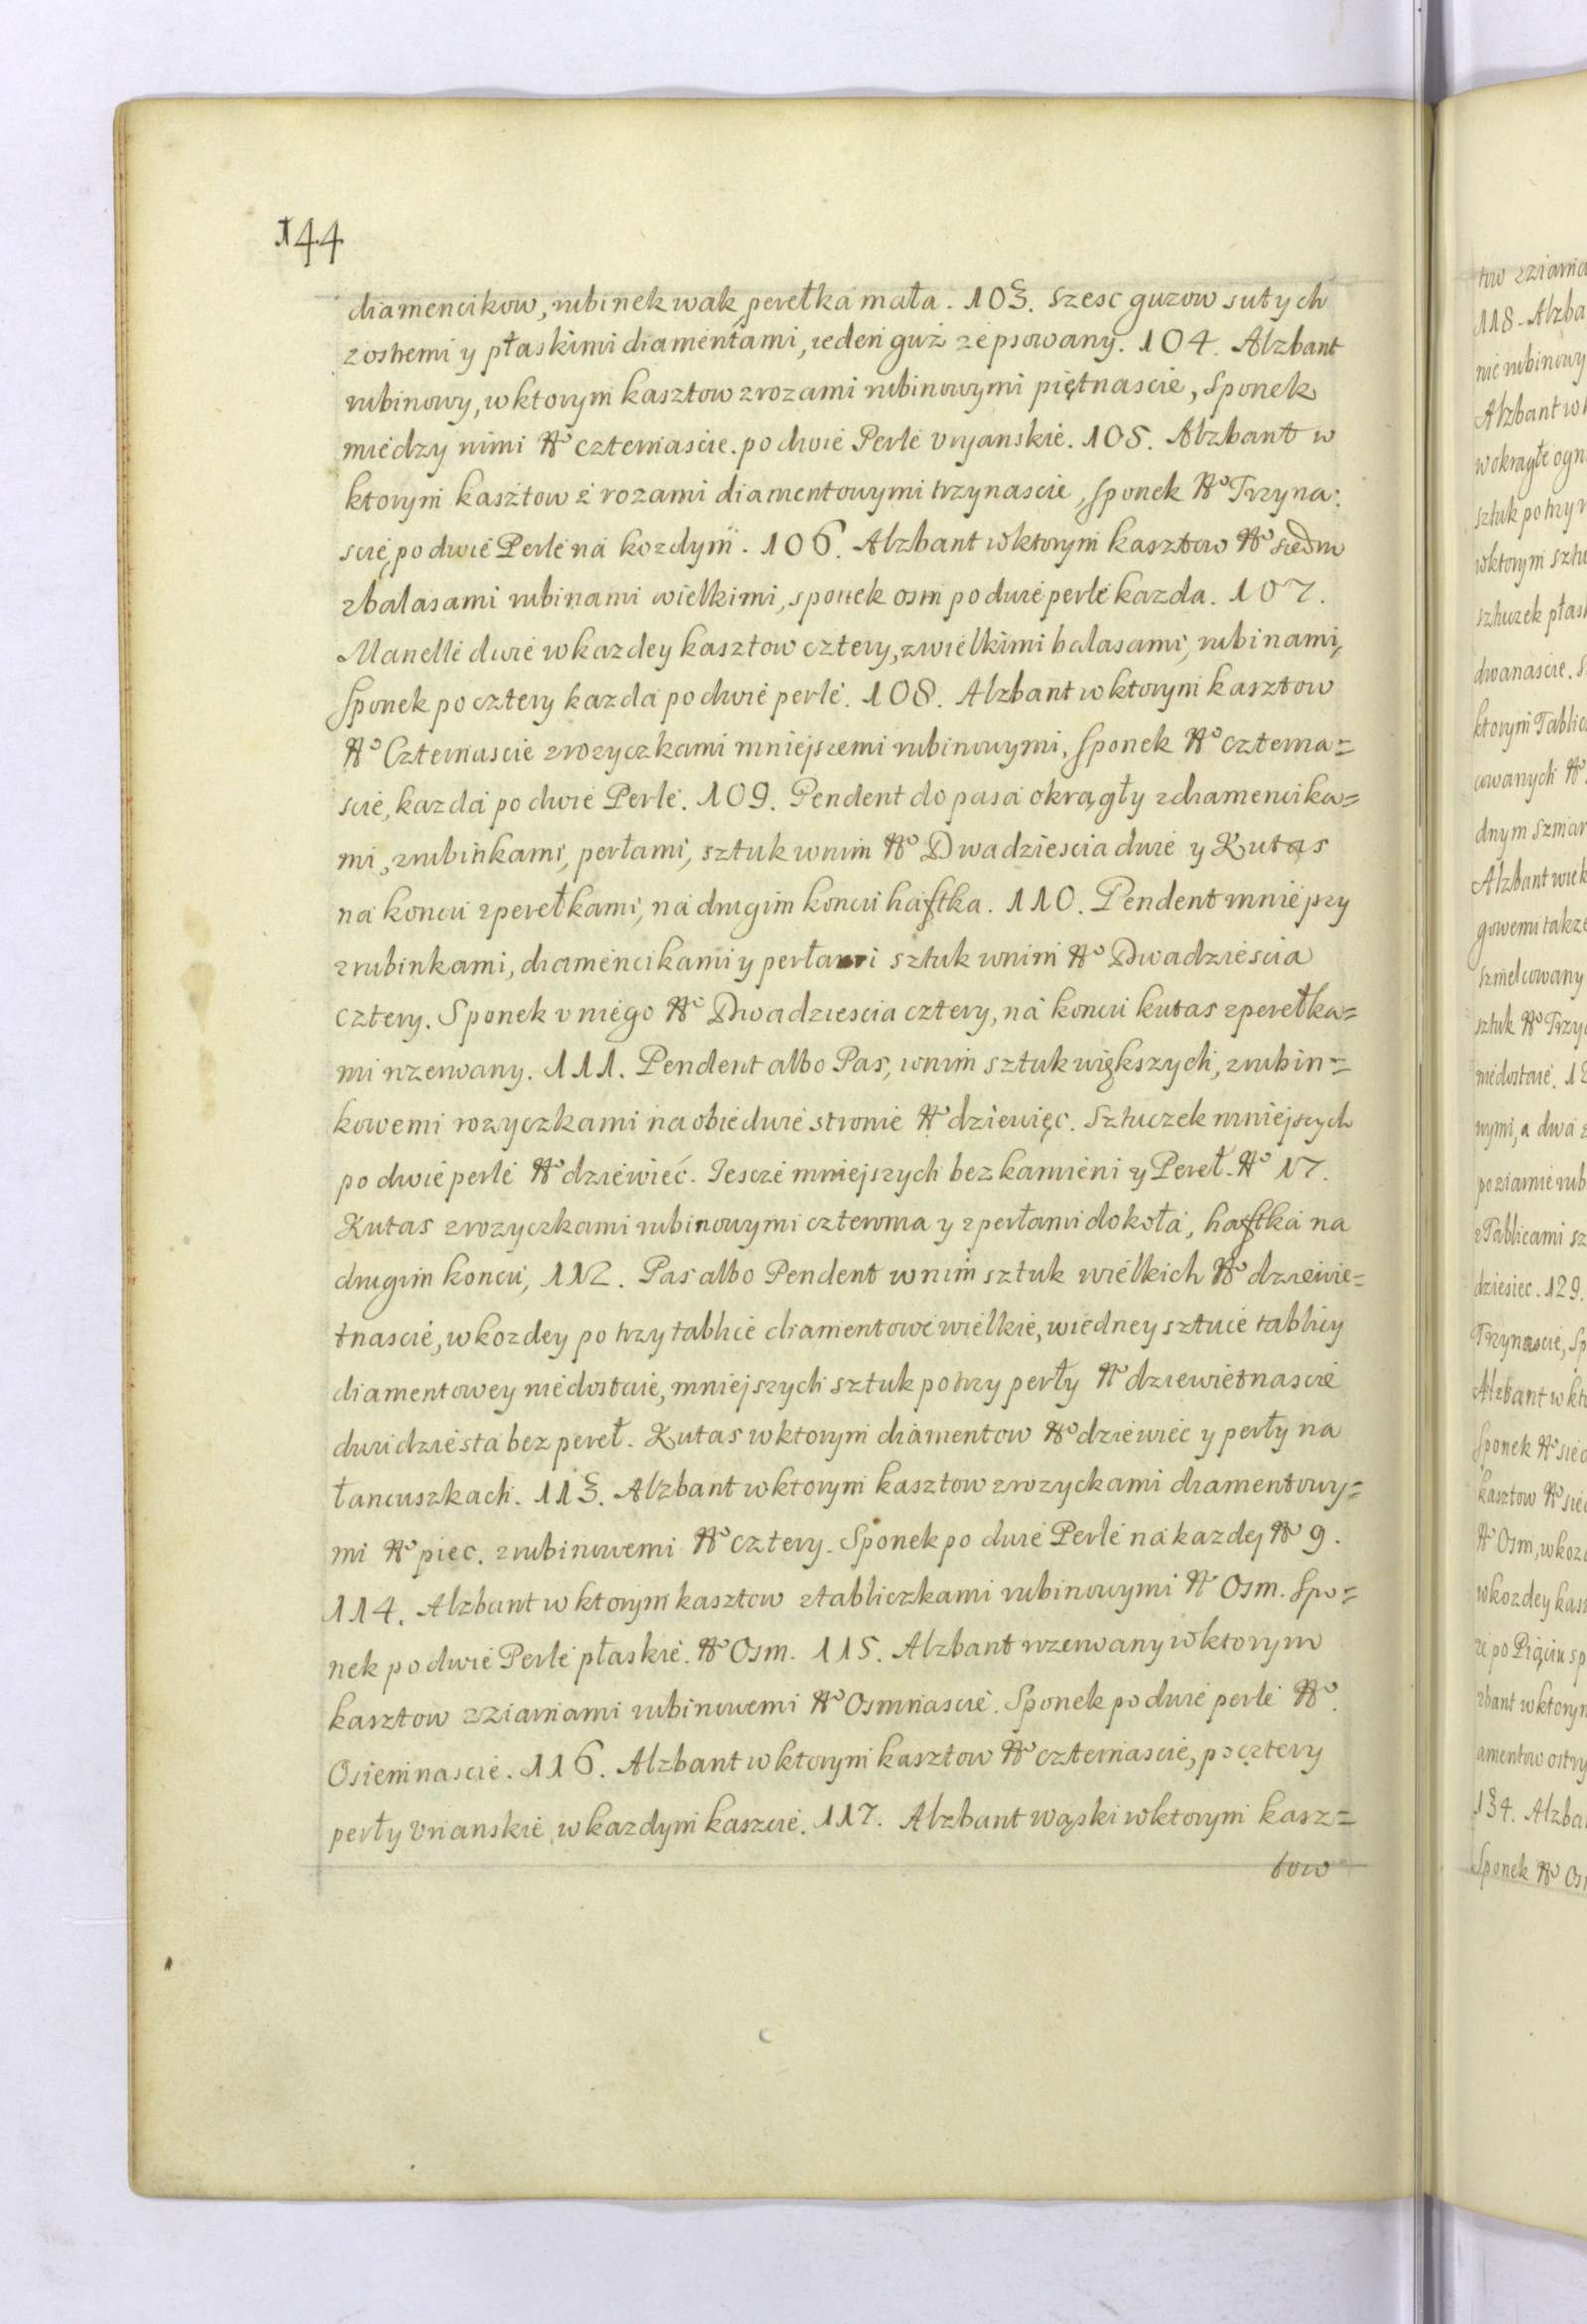 144
diamencikow, rubinek wak perełka mała. 103. szesc guzow sutych
z ostremi y płaskimi diamentami, ieden guz zepsowany. 104. Alzbant
rubinowy, w ktorym kasztow z rozami rubinowymi piętnascie, Sponek
miedzy nimi No czternascie. po dwie Perle vryanskie. 105. Alzbant w
ktorym kasztow z rozami diamentowymi trzynascie, Sponek No Trzyna:
scie, po dwie Perle na kozdym. 106. Alzbant w ktorym kasztow No siedm
z balasami rubinami wielkimi, sponek osm po dwie perle kazda. 107.
Manelle dwie w kazdey kasztow cztery, z wielkimi balasami, rubinami,
Sponek po cztery kazda po dwie perle. 108. Alzbant w ktorym kasztow
No Czternascie z rozyczkami mniejszemi rubinowymi, Sponek No czterna=
scie, kazda po dwie Perle. 109. Pendent do pasa okrągły z diamencika=
mi, z rubinkami, perłami, sztuk w nim No Dwadziescia dwie y Kutas
na koncu z perełkami, na drugim koncu haftka. 110. Pendent mniejszy
z rubinkami, diamencikami y perłami sztuk w nim No Dwadziescia
cztery. Sponek v niego No Dwadziescia cztery, na koncu kutas z perełka=
mi vrzerwany. 111. Pendent albo Pas, w nim sztuk większych, z rubin=
kowemi rozyczkami na obie dwie stronie No dziewięc. Sztuczek mniejszych
po dwie perle No dziewieć. Jescze mniejszych bez kamieni y Pereł. No 17.
Kutas z rozyczkami rubinowymi czterma y z perłami dokoła, haftka na
drugim koncu, 112. Pas albo Pendent w nim sztuk wielkich No dziewie=
tnascie, w kozdey po trzy tablice diamentowe wielkie, w iedney sztuce tablicy
diamentowey niedostaie, mniejszych sztuk po trzy perły No dziewietnascie
dwudziesta bez pereł. Kutas w ktorym diamentow No dziewiec y perły na
łancuszkach. 113. Alzbant w ktorym kasztow z rozyckami diamentowy=
mi No piec. z rubinowemi No cztery. Sponek po dwie Perle na kazdej No 9.
114. Alzbant w ktorym kasztow z tabliczkami rubinowymi No Osm. Spo=
nek po dwie Perle płaskie. No Osm. 115. Alzbant vrzerwany w ktorym
kasztow z ziarnami rubinowemi No Osmnascie. Sponek po dwie perle No
Osiemnascie. 116. Alzbant w ktorym kasztow No czternascie, po cztery
perły vrianskie w kazdym kaszcie. 117. Alzbant wąski w ktorym kasz=
tow